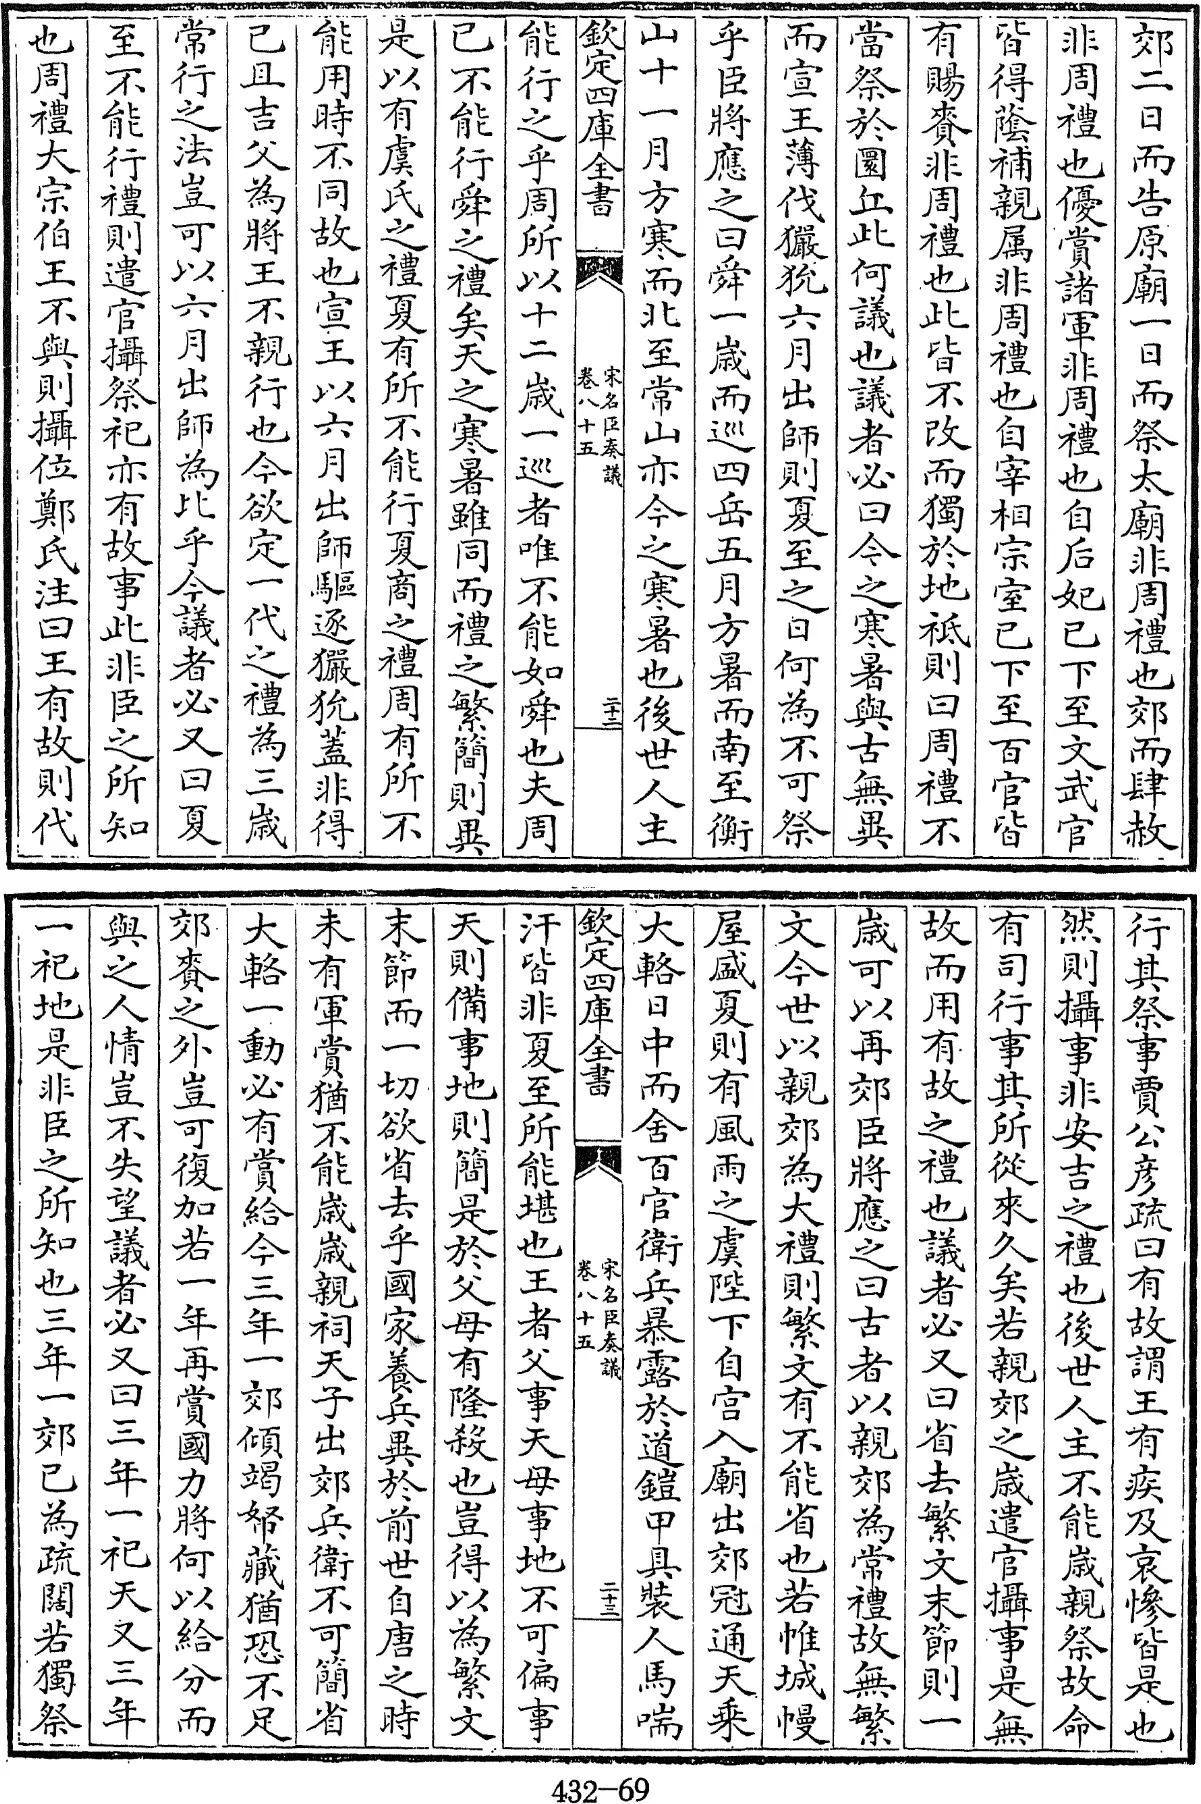 郊二日而告原廟一日而祭太廟非周禮也郊而肆赦
非周禮也優賞諸軍非周禮也自后妃已下至文武官
皆得蔭補親属非周禮也自宰相宗室已下至百官皆
有賜賚非周禮也此皆不改而獨於地祗則曰周禮不
當祭於圜丘此何議也議者必曰今之寒暑與古無異
而宣王薄伐玁狁六月出師則夏至之日何為不可祭
乎臣將應之曰舜一歳而巡四岳五月方暑而南至衡
山十一月方寒而北至常山亦今之寒暑也後世人主
欽定四庫全書
宋名臣奏議
卷八十五
二十二
能行之乎周所以十二歳一巡者唯不能如舜也夫周
已不能行舜之禮矣天之寒暑雖同而禮之繁簡則異
是以有虞氏之禮夏有所不能行夏商之禮周有所不
能用時不同故也宣王以六月出師驅逐玁狁蓋非得
已且吉父為將王不親行也今欲定一代之禮為三歳
常行之法豈可以六月出師為比乎今議者必又曰夏
至不能行禮則遣官攝祭祀亦有故事此非臣之所知
也周禮大宗伯王不與則攝位鄭氏注曰王有故則代
行其祭事賈公彦疏曰有故謂王有疾及哀慘皆是也
然則攝事非安吉之禮也後世人主不能歳親祭故命
有司行事其所從來久矣若親郊之歳遣官攝事是無
故而用有故之禮也議者必又曰省去繁文末節則一
歳可以再郊臣將應之曰古者以親郊為常禮故無繁
文今世以親郊為大禮則繁文有不能省也若帷城幔
屋盛夏則有風雨之虞陛下自宫入廟出郊冠通天乗
大輅日中而舍百官衛兵暴露於道鎧甲具裝人馬喘
欽定四庫全書
宋名臣奏議
卷八十五
二十三
汗皆非夏至所能堪也王者父事天母事地不可偏事
天則備事地則簡是於父母有隆殺也豈得以為繁文
末節而一切欲省去乎國家養兵異於前世自唐之時
未有軍賞猶不能歳歳親祠天子出郊兵衛不可簡省
大輅一動必有賞給今三年一郊傾竭帑藏猶恐不足
郊賚之外豈可復加若一年再賞國力將何以給分而
與之人情豈不失望議者必又曰三年一祀天又三年
一祀地是非臣之所知也三年一郊已為疏闊若獨祭
432—69